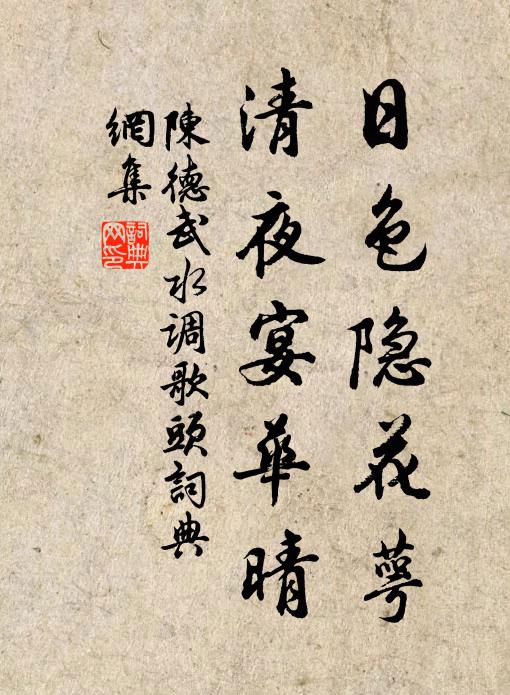 日色隐花萼
清夜宴華晴
陳德武水调歌頭詞典
網集
詞典
网印